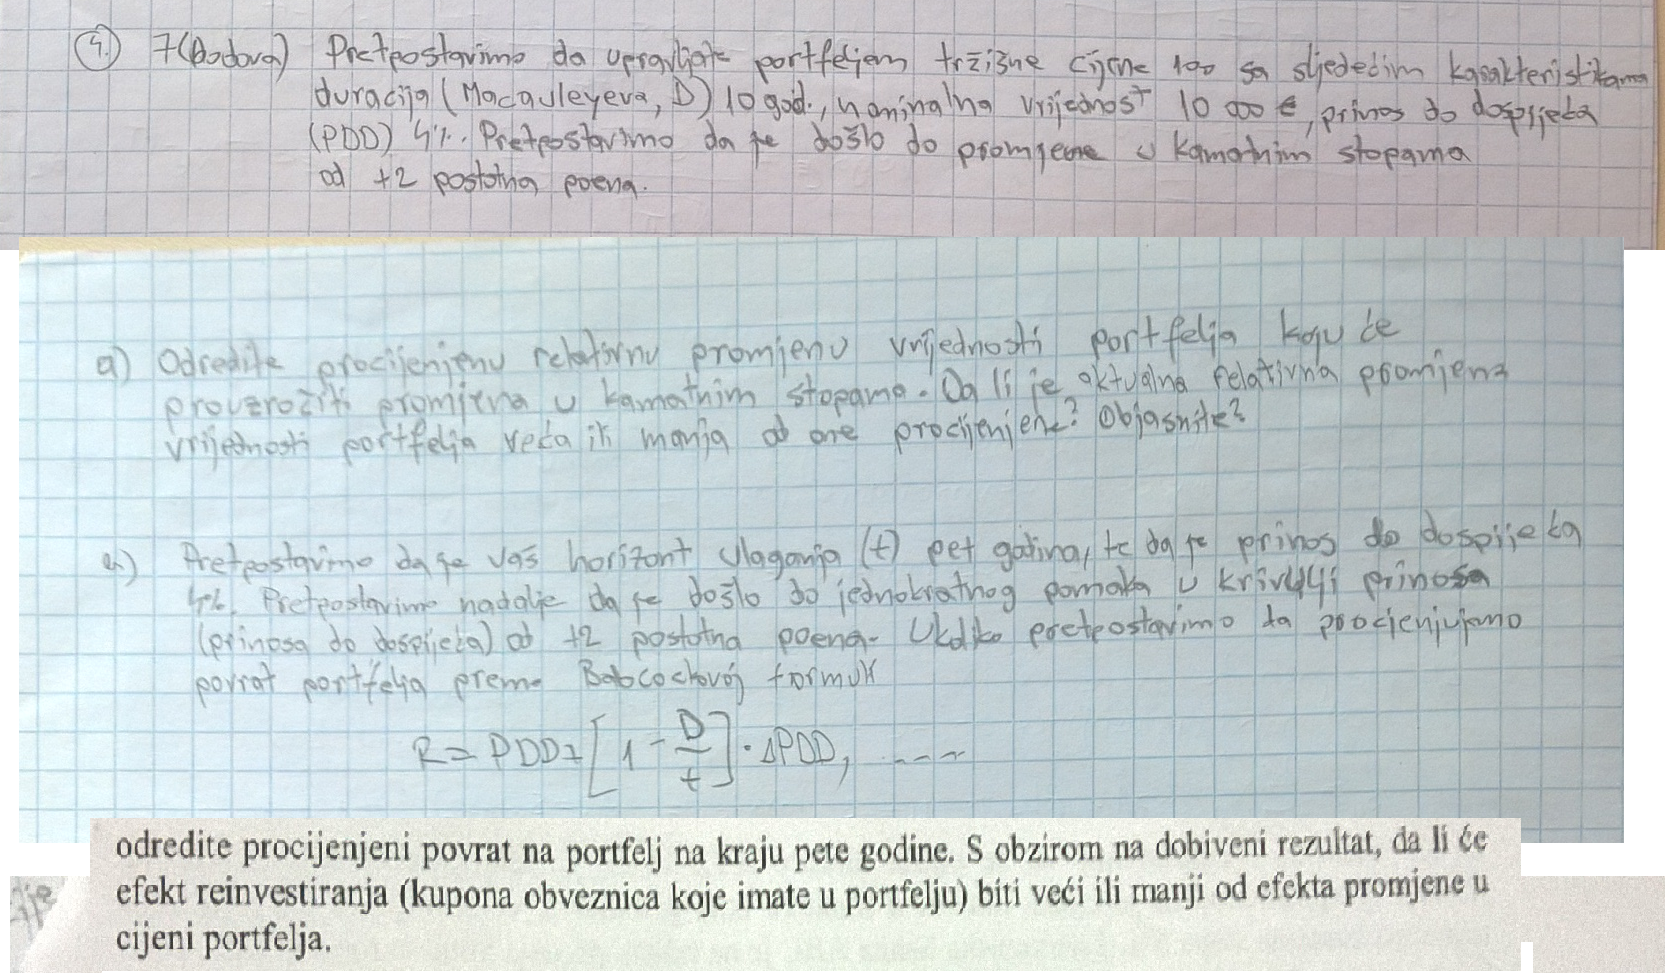 4.) 7(bodova) Pretpostavimo da upravljate portfeljem tržišne cijene 100 sa sljedećim karakteristikama
duracija (Macauleyeva, D) 10 god., nominalna vrijednost 10 000 €, prinos do dospijeća
(PDD) 4%. Pretpostavimo da je došlo do promjene u kamatnim stopama
od +2 postotna poena.
a) Odredite procijenjenu relativnu promjenu vrijednosti portfelja koju će
prouzročiti promjena u kamatnim stopama. Da li je aktualna relativna promjena
vrijednosti portfelja veća ili manja od one procijenjene? Objasnite?
Pretpostavimo da je vaš horizont ulaganja (t) pet godina, te da je prinos do dospijeća
4%. Pretpostavimo nadalje da je došlo do jednokratnog pomaka u krivulji prinosa
(prinosa do dospijeća) od +2 postotna poena. Ukoliko pretpostavimo da procjenjujemo
povrat portfelja prema Babcockovoj formuli
R = PDD + [1 - D/t] · ΔPDD, ----
odredite procijenjeni povrat na portfelj na kraju pete godine. S obzirom na dobiveni rezultat, da li će
efekt reinvestiranja (kupona obveznica koje imate u portfelju) biti veći ili manji od efekta promjene u
cijeni portfelja.